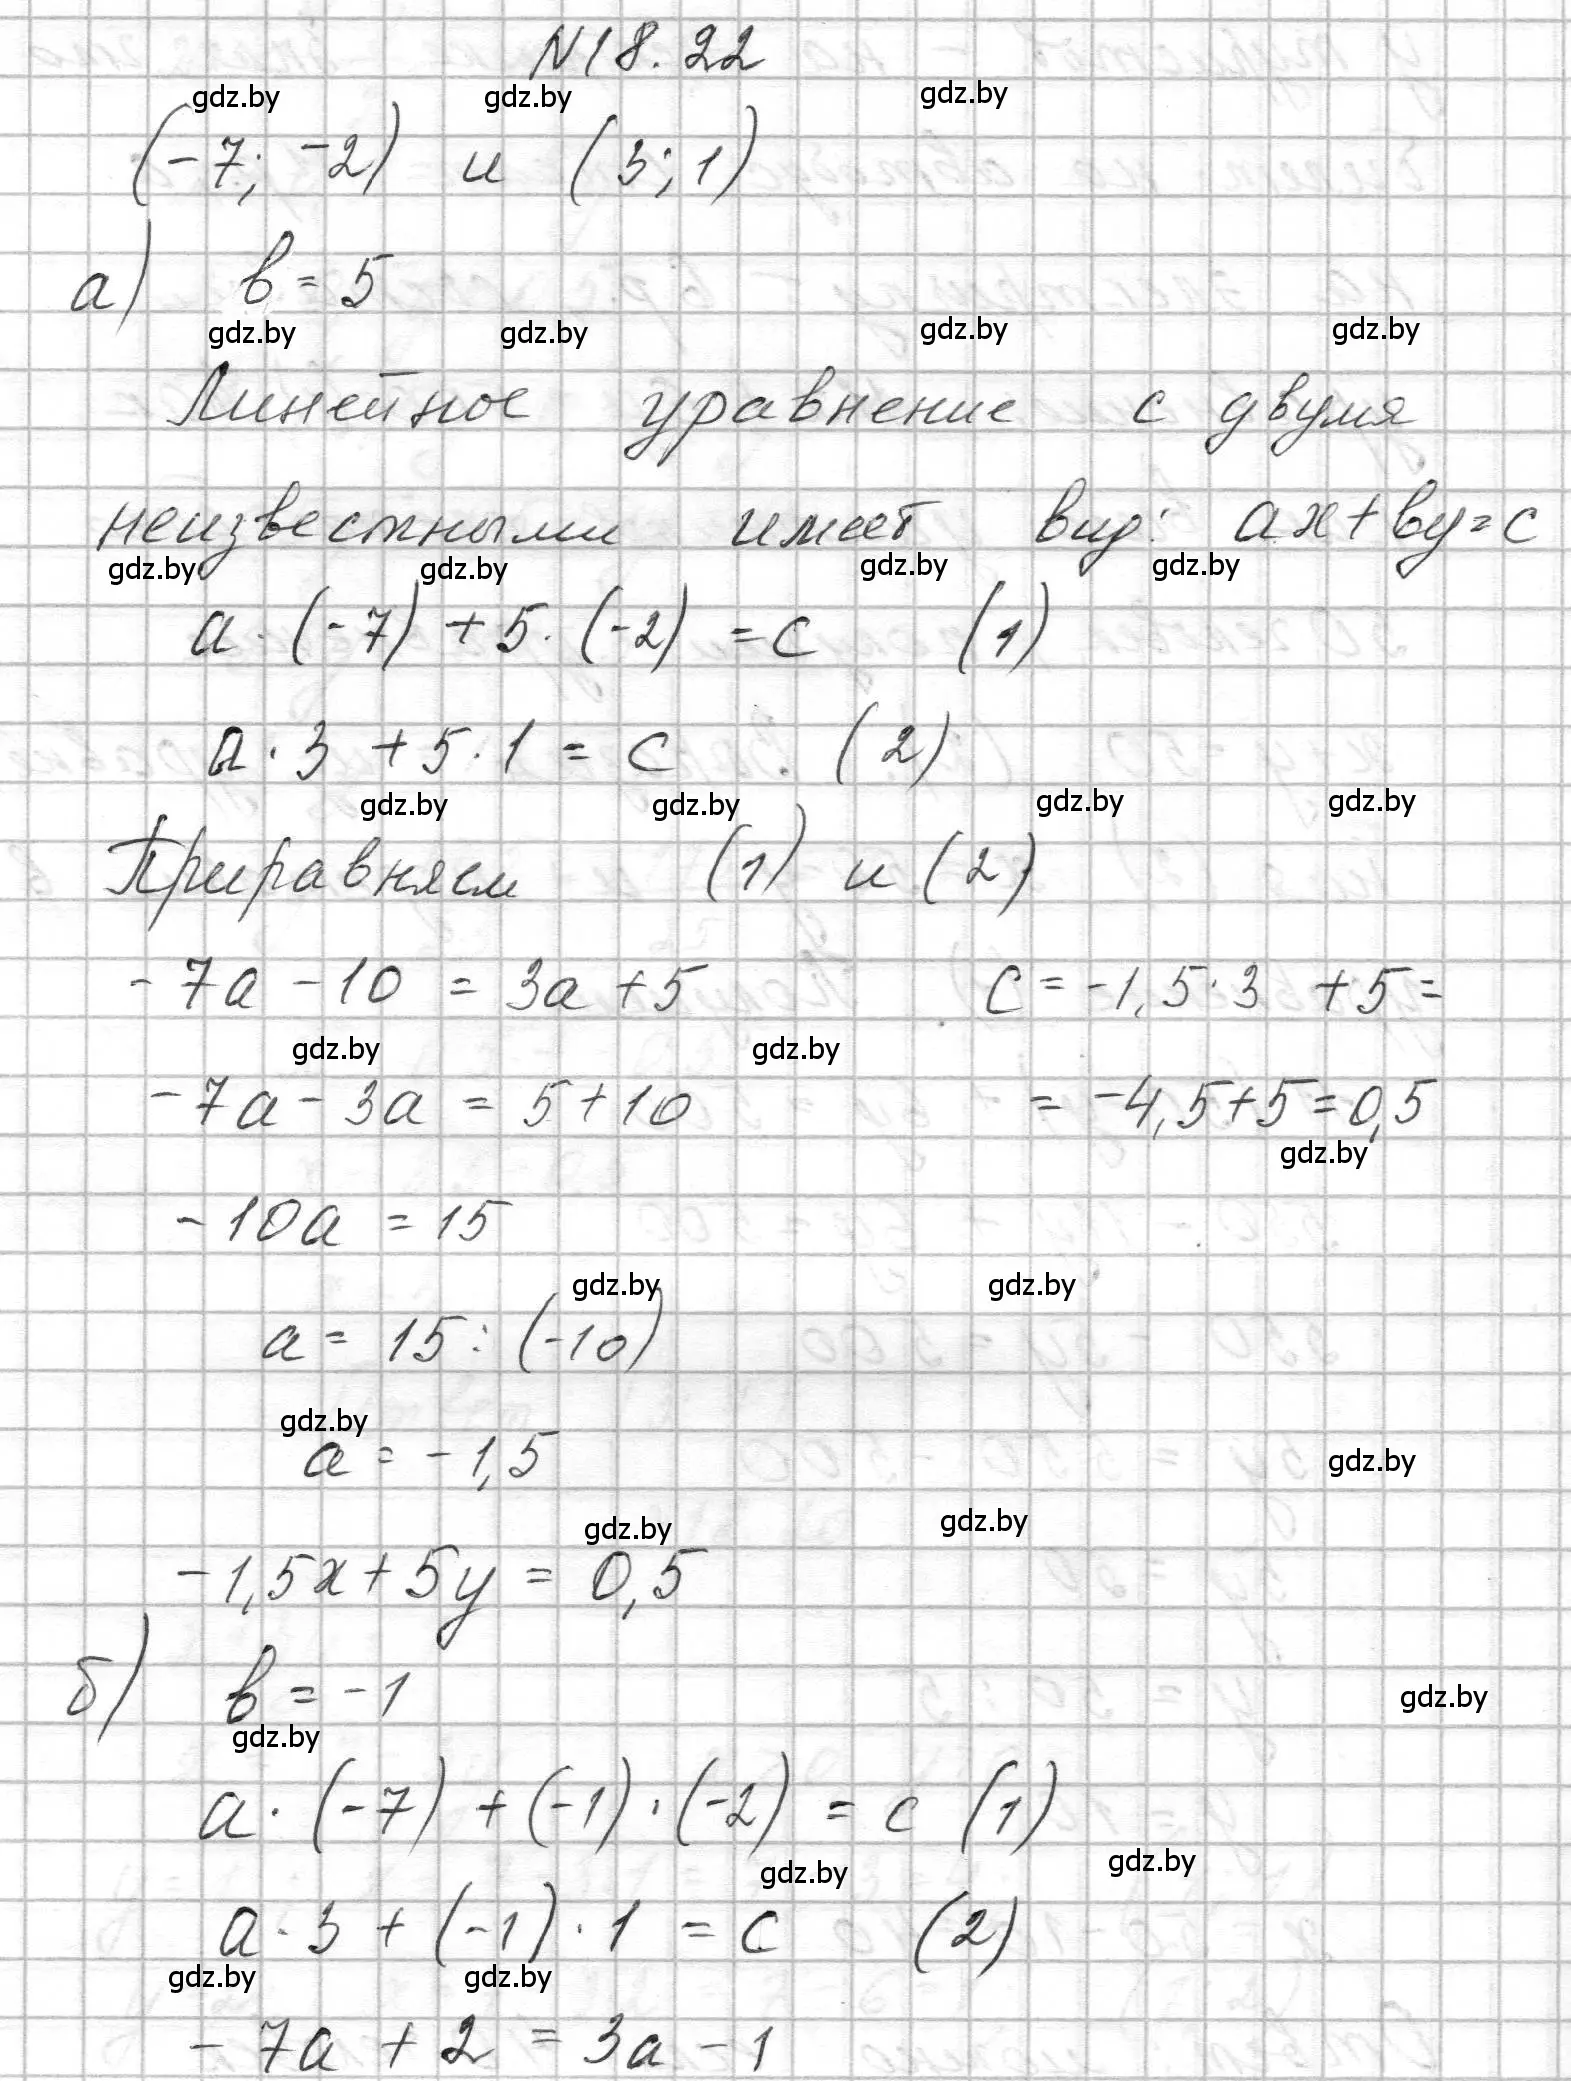 N18.22
gdz.by gdz.by gdz.by
(-7; -2) и (3; 1)
а) b = 5
gdz.by gdz.by gdz.by gdz.by
Линейное уравнение с двумя
неизвестными имеет вид: ax+by=c
gdz.by gdz.by gdz.by gdz.by
a · (-7) + 5 · (-2) = c (1)
a · 3 + 5 · 1 = c (2)
gdz.by gdz.by gdz.by gdz.by
Приравняем (1) и (2)
-7a - 10 = 3a + 5 c = -1,5 · 3 + 5 =
gdz.by gdz.by
-7a - 3a = 5 + 10 = -4,5+5=0,5
gdz.by
-10a = 15
gdz.by gdz.by
a = 15 : (-10)
gdz.by
a = -1,5
gdz.by
gdz.by gdz.by
-1,5x + 5y = 0,5
б) b = -1
gdz.by
gdz.by
a · (-7) + (-1) · (-2) = c (1)
gdz.by gdz.by
a · 3 + (-1) · 1 = c (2)
gdz.by gdz.by
-7a + 2 = 3a - 1